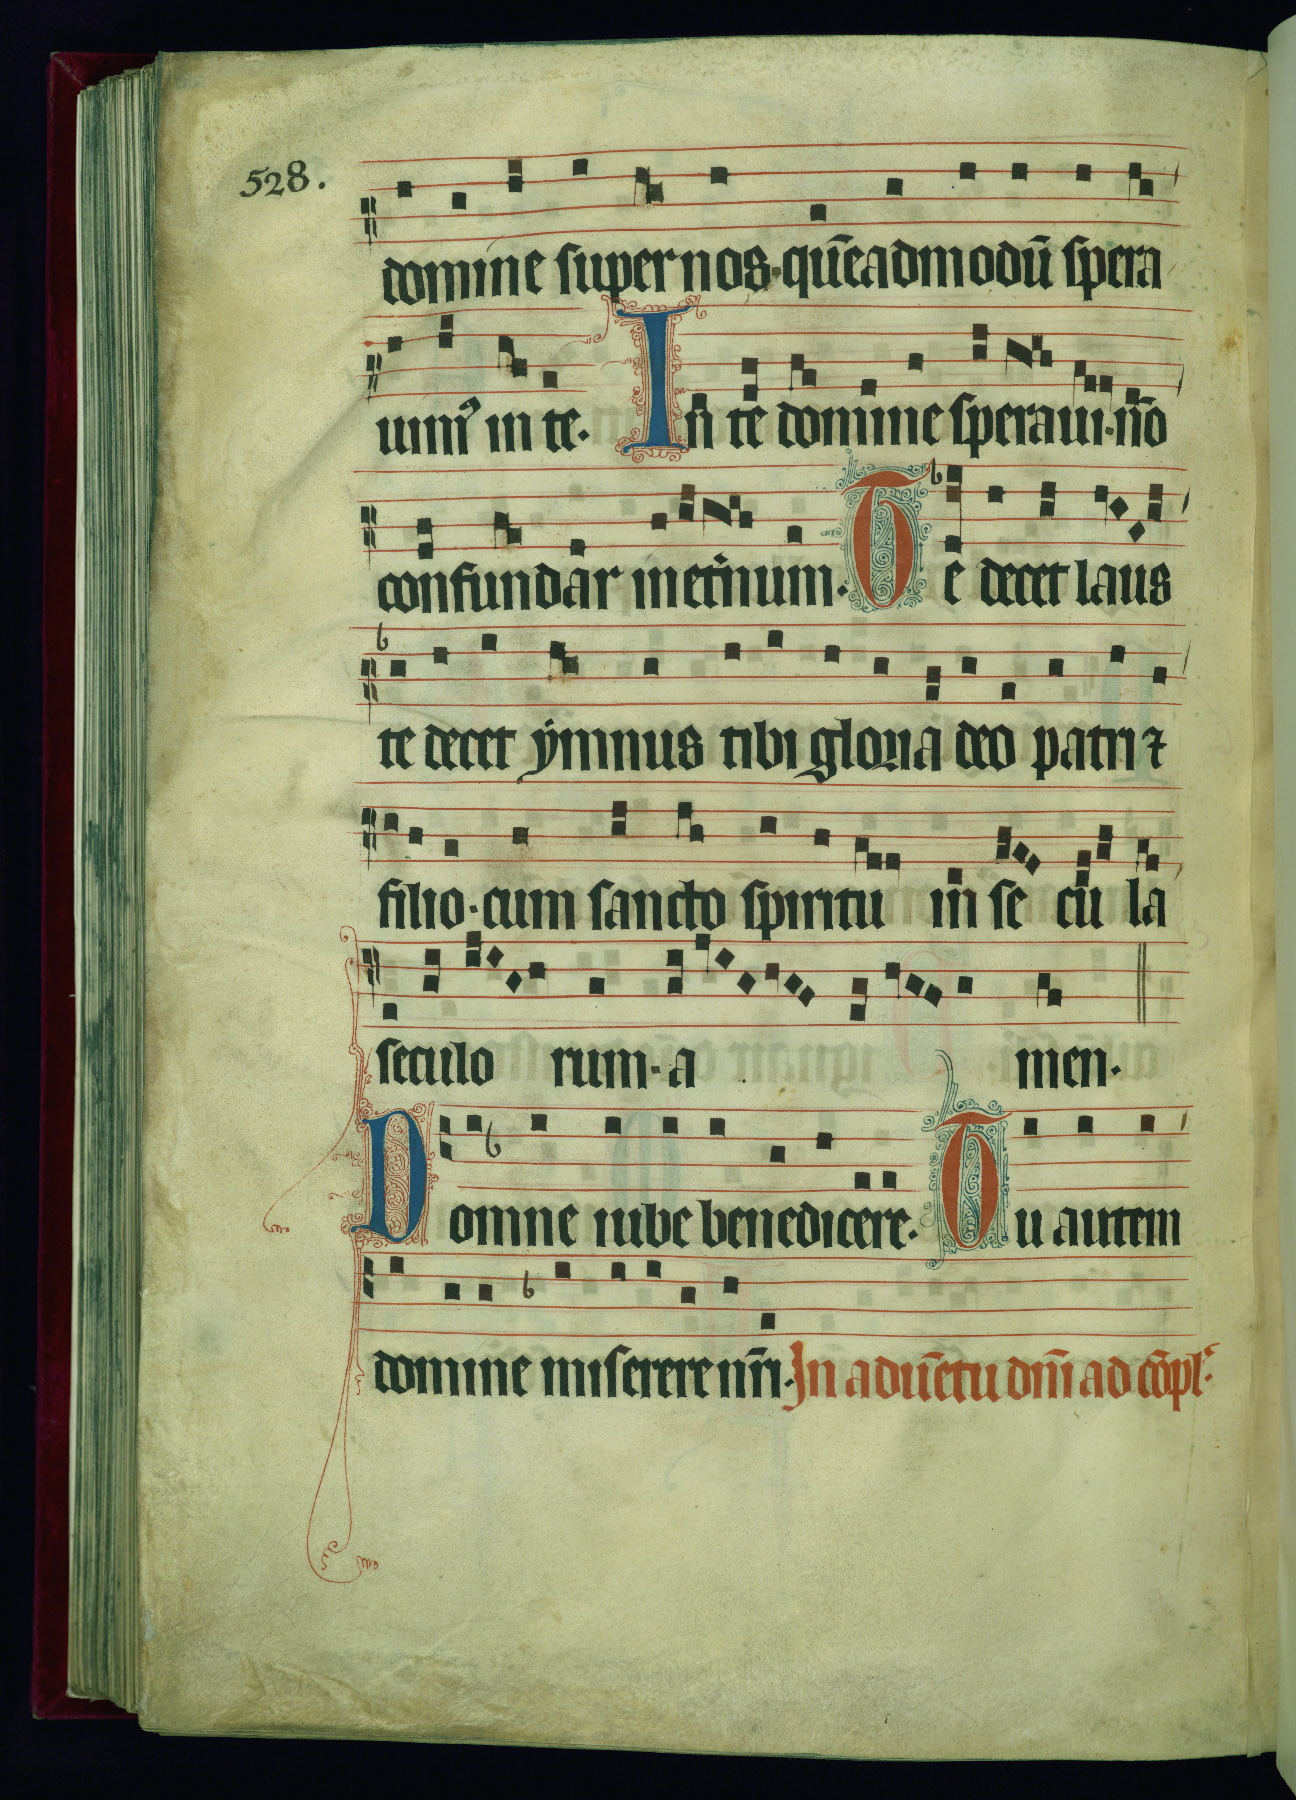 528.
domine super nos. quēadmodū spera
uimꝰ in te. In te domine speraui. nō
confundar in et̄num. Te decet laus
te decet ẏmnus tibi gloria deo patri ⁊
filio. cum sancto spiritu in se cū la
seculo rum. a men.
Domne iube benedicere. Tu autem
domine miserere nr̄i. In aduētu dn̄i ad cōpl'.